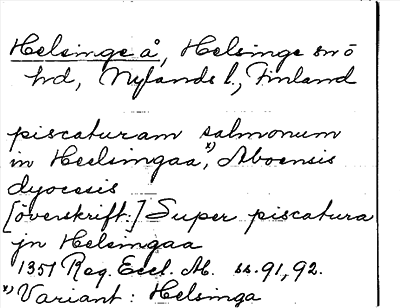 Helsinge å, Helsinge snö
hd, Nylands l., Finland
piscaturam salmonum
in Heelsingaa,x) Aboensis
dyocesis
[överskrift:] Super piscatura
jn Helsingaa
1351 Reg. Eccl. Ab. ss. 91, 92.
x) Variant: Helsinga